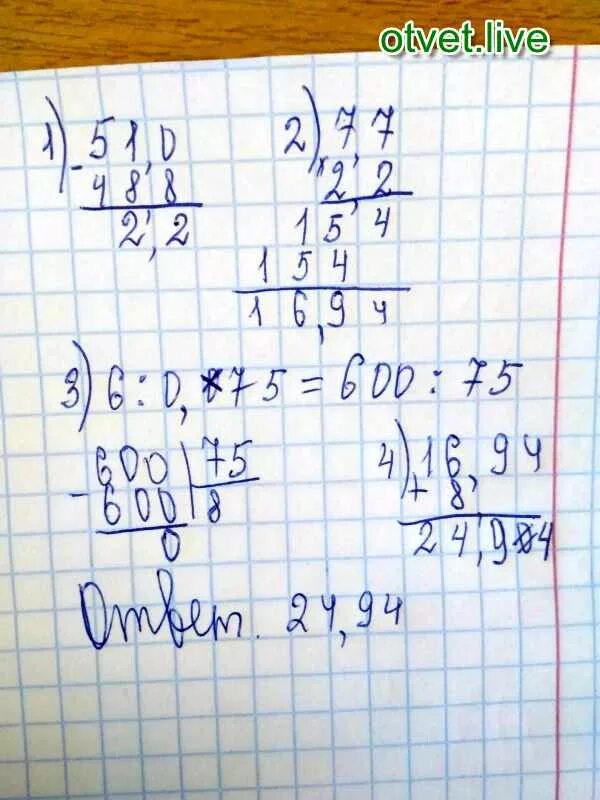 otvet.live
1) 51,0
- 488
2,2
2) 7,7
× 2,2
154
154
16,94
3) 6 : 0,75 = 600 : 75
600 | 75
- 600 | 8
0
4) 16,94
+ 8,
24,94
Ответ. 24,94